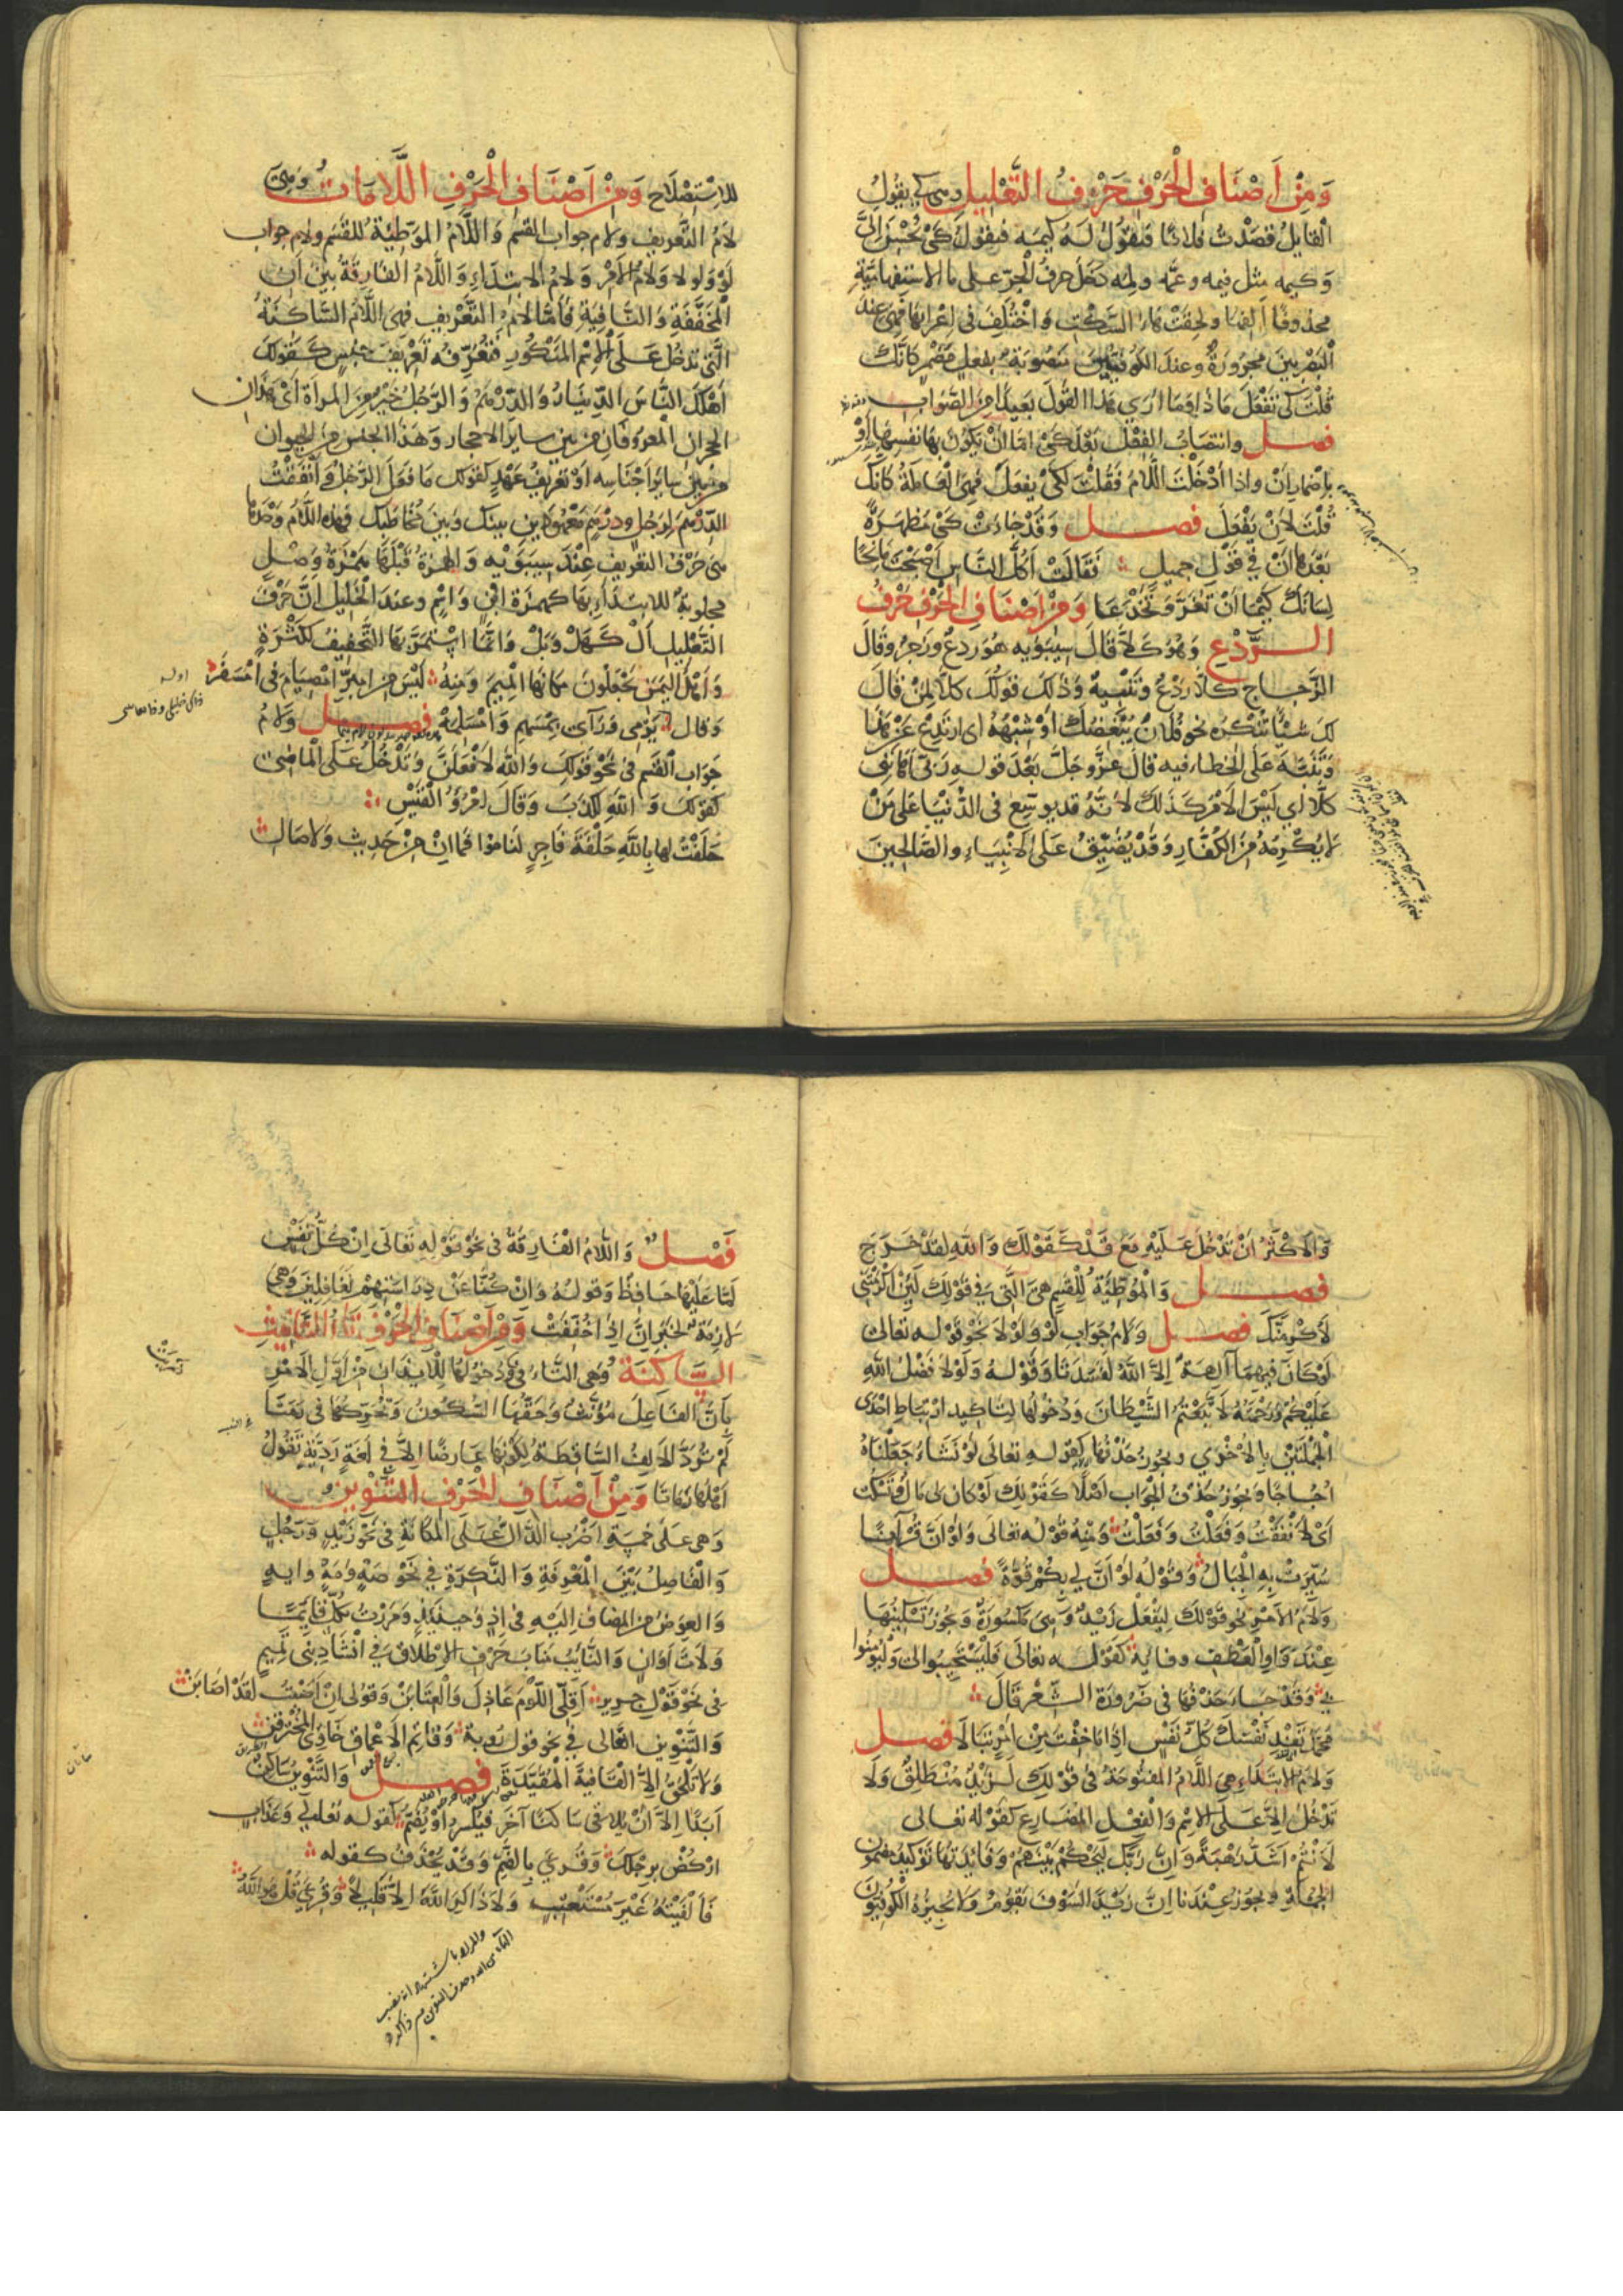 وَمِنْ أَصْنَافِ الْحَرْفِ حَرْفُ التَّعْلِيلِ وهى كى يقولُ
القايلُ قصدْتُ فلانًا فتقولُ لهُ كيمه فيقولُ كىْ يُحْسِنَ إلىَّ
وكيمه مثل فيمه وعمّه ولمه دخل حرفُ الجرّ على ما الاستفهاميّةِ
محذوفًا ألفها ولحقتْ هاءُ السَّكْتِ وَاخْتُلِفَ فى إعرابها فهى عند
البصريينَ مجرورةٌ وعندَ الكوفيّينَ منصوبةٌ بفعلٍ مُضْمَرٍ كانّك
قلْتَ كى تفْعَلَ ماذا وَما ارى هذا القولَ بعيدًا من الصّوابِ
فصل وانتصابُ الفِعْلِ بَعْدَ كىْ امّا انْ يكونَ بها نفسِها أوْ
بإضمارِ أنْ واذا أدْخَلْتَ اللَّامَ فقُلْتَ لكىْ يفعلَ فهى العاملةُ كانّك
قلْتَ لِأنْ يَفْعَلَ فصل وَقدْ جاءتْ كىْ مُظْهَرَةً
بَعْدَهَا أنْ فى قَوْلِ جميلٍ فَقَالَتْ أكُلَّ النَّاسِ أصْبَحْتَ مَانِحًا
لِسَانَكَ كَيْمَا أنْ تَغُرَّ وَتَخْدَعَا وَمِنْ أَصْنَافِ الْحَرْفِ حَرْفُ
الرَّدْعِ وَهُوَ كَلَّا قَالَ سِيبَوَيْهِ هُوَ رَدْعٌ وزَجْرٌ وقَالَ
الزَّجاج كلّا رَدْعٌ وَتَنْبِيهٌ وَذلكَ قولُكَ كلّا لِمَنْ قالَ
لكَ شَيْئًا تُنْكِرُهُ نحو فُلَانٌ يُبْغِضُكَ أوْ شِبْهُهُ اى ارتَدِعْ عن هذا
وَتَنَبَّهْ عَلَى الخطاء فيه قالَ عزَّ وجلَّ بَعْدَ قولِهِ رَبّى أَهَانَنِى
كلّا أى لَيْسَ الامْرُ كذلكَ لانّهُ قد يوسّع فى الدُّنْيَا على مَنْ
لَا يُكْرِمُهُ مِنَ الكُفَّارِ وَقَدْ يُضَيِّقُ عَلَى الانْبِيَاءِ والصَّالحينَ
للاسْتِصْلَاحِ وَمِنْ أَصْنَافِ الْحَرْفِ اللَّامَاتُ وَهِىَ
لامُ التَّعْريفِ ولام جوابِ القسَمِ وَاللَّامُ الموَطِّئةُ للقسَمِ ولام جواب
لَوْ ولولا وَلامُ الأمْرِ ولامُ الابتدَاءِ وَاللَّامُ الفارِقَةُ بينَ انْ
المخَفَّفَةِ وَالنَّافِيَةِ فَأمّا لامُ التَّعْريفِ فهىَ اللّامُ السَّاكِنَةُ
الّتى تدخُلُ عَلَى الاسْمِ المنكُورِ فَتُعَرِّفُهُ تَعْريفَ جِنْسٍ كَقَوْلِكَ
أهْلَكَ النَّاسَ الدِّينَارُ وَالدِّرْهَمُ وَالرَّجُلُ خَيْرٌ مِنَ المرأةِ أىْ هذان
الحجران المعروفان من بين سايرِ الاحجار وَهَذا الجنس من الحيوان
من بين سايرِ أجْنَاسِهِ أوْ تعريفَ عَهْدٍ كقولِكَ مَا فَعَلَ الرَّجُلُ وأنْفَقْتُ
الدِّرْهَمَ لِرَجُلٍ ودِرْهَمٍ مَعْهُودَيْنِ بينكَ وَبَيْنَ مُخاطَبِكَ فهذه اللَّامُ وَحْدَهَا
هى حَرْفُ التعريفِ عِنْدَ سِيبَوَيْهِ وَالهَمْزَةُ قَبْلَهَا هَمْزَةُ وَصْلٍ
مجلوبةٌ للابتدَاءِ بِهَا كهمزَةِ ابْنٍ وَاسْمٍ وعندَ الخليلِ انَّ حَرْفَ
التَّعْليلِ أَلْ كَهَلْ وَبَلْ وَانّمَا اسْتَمَرَّ بِهَا التَّخفيفُ لِلكَثْرَةِ
وَأهْلُ اليَمَنِ يَجْعَلُونَ مَكَانَهَا المِيمَ وَمِنْهُ لَيْسَ مِنْ امْبِرِّ امْصِيَامُ فى امْسَفَرْ
وَقالَ يَرْمى وَرَآئى بِامْسَهْمِ وَامْسَلِمَهْ فصل وَلامُ
جَوَابِ القَسَمِ فى نَحْوِ قَوْلِكَ وَاللهِ لَأفْعَلَنَّ وَتَدْخُلُ عَلَى المَاضِى
كقولكَ وَاللهِ لَكَذَبَ وَقَالَ امْرُؤُ القَيْسِ
حَلَفْتُ لها باللهِ حَلْفَةَ فَاجِرٍ لَنَامُوا فَمَا انْ مِنْ حَدِيثٍ وَلَا صَالِ
وَالاكْثَرُ انْ تَدْخُلَ عَلَيْهِ مَعَ قَدْ كَقَوْلِكَ وَاللهِ لَقَدْ خَرَجَ
فصل وَالمُوَطِّئَةُ لِلْقَسَمِ هِىَ الَّتى فى قَوْلِكَ لَئِنْ أكْرَمْتَنى
لَأكْرِمَنَّكَ فصل وَلَامُ جَوَابِ لَوْ وَلَوْلَا نحو قَوْلِهِ تعالى
لَوْ كَانَ فِيهِمَا آلِهَةٌ إلَّا اللهُ لَفَسَدَتَا وَقَوْلُهُ وَلَوْلَا فَضْلُ اللهِ
عَلَيْكُمْ وَرَحْمَتُهُ لَاتَّبَعْتُمُ الشَّيْطَانَ وَدُخُولُهَا لِتَاكِيدِ ارْتِبَاطِ احْدَى
الجُمْلَتَيْنِ بِالأخْرى ويجوزُ حَذْفُهَا كقولِهِ تعالى لَوْ نَشَاءُ جَعَلْنَاهُ
أُجَاجًا وَيجوزُ حَذْفُ الجَوَابِ أصْلًا كَقَوْلِكَ لَوْ كَانَ لى مَالٌ وَتَسْكُتُ
أىْ لَأنْفَقْتُ وَفَعَلْتُ وَفَعَلْتُ وَمِنْهُ قَوْلُهُ تعالى وَلَوْ أنَّ قُرْآنًا
سُيِّرَتْ بِهِ الجِبَالُ وَقَوْلُهُ لَوْ أنَّ لى بِكُمْ قُوَّةً فصل
وَلَامُ الأمْرِ نَحْو قَوْلِكَ لِيَفْعَلْ زَيْدٌ وَهِىَ مَكْسُورَةٌ وَيجوزُ تَسْكِينُهَا
عِنْدَ وَاوِ العَطْفِ وفائه كَقَوْلِهِ تعالى فَلْيَسْتَجِيبُوا لى وَلْيُؤْمِنُوا
بى وَقَدْ جَاءَ حَذْفُهَا فى ضَرُورَةِ الشِّعْرِ قَالَ
مُحَمَّدُ تَفْدِ نَفْسَكَ كُلُّ نَفْسٍ إذَا مَا خِفْتَ مِنْ أمْرٍ تَبَالَا فصل
وَلَامُ الابْتِدَاءِ هِىَ اللَّامُ المَفْتُوحَةُ فى قَوْلِكَ لَزَيْدٌ مُنْطَلِقٌ وَلَا
تَدْخُلُ إلَّا عَلَى الاسْمِ وَالفِعْلِ المُضَارِعِ كَقَوْلِهِ تعالى
لَأنْتُمْ أشَدُّ رَهْبَةً وَإنَّ رَبَّكَ لَيَحْكُمُ بَيْنَهُمْ وَفَائِدَتُهَا تَوْكِيدُ مضمون
الجُمْلَةِ ويجوزُ عِنْدَنَا إنَّ زَيْدًا لَسَوْفَ يَقُومُ وَلَا يُجِيزُهُ الكُوفِيُّونَ
فَصْل وَاللَّامُ الفَارِقَةُ فى نَحْو قَوْلِهِ تَعَالَى إنْ كُلُّ نَفْسٍ
لَمَّا عَلَيْهَا حَافِظٌ وَقولُهُ وَإنْ كُنَّا عَنْ دِرَاسَتِهِمْ لَغَافِلِينَ وَهِىَ
لازِمَةٌ لخَبَرِ إنَّ إذَا خُفِّفَتْ وَمِنْ أَصْنَافِ الْحَرْفِ تَاءُ التَّأنِيثِ
السَّاكِنَةُ وَهى التَّاءُ فى ودُخُولُهَا لِلْإيذَانِ مِنْ أوَّلِ الأمْرِ
بِأنَّ الفَاعِلَ مُؤَنَّثٌ وَحَقُّهَا السُّكُونُ وَتَحَرُّكُهَا فى رَمَتَا
لَمْ تُرَدَّ الألِفُ السَّاقِطَةُ لِكَوْنِهَا عَارِضًا إلّا فى لُغَةٍ رَدِيَّةٍ يَقُولُ
أهْلُهَا رَمَاتَا وَمِنْ أَصْنَافِ الْحَرْفِ التَّنْوِينُ
وَهى عَلَى خَمْسَةِ أضْرُبٍ الدَّالُّ عَلَى المَكَانَةِ فى نَحْو زَيْدٍ وَرَجُلٍ
وَالْفَاصِلُ بَيْنَ المَعْرِفَةِ وَالنَّكِرَةِ فى نَحْو صَهٍ وَمَهٍ وايهٍ
وَالعِوَضُ مِنَ المضَافِ إلَيْهِ فى إذٍ وحِينَئِذٍ وَمَرَرْتُ بِكُلٍّ قَائِمًا
وَلَاتَ أوَانٍ وَالنَّايبُ مَنَابَ حَرْفِ الإطْلَاقِ فى إنْشَادِ بَنى تَمِيمٍ
فى نَحْو قَوْلِ جَرِيرٍ أقِلِّى اللَّوْمَ عَاذِلَ وَالعِتَابَنْ وَقُولى إنْ أصَبْتُ لَقَدْ أصَابَنْ
وَالتَّنْوِينُ الغَالى فى نحو قول رُؤبةَ وَقَاتِمِ الأعْمَاقِ خَاوِى المُخْتَرَقِنْ
وَلَا تَلْحَقُ إلَّا القَافِيَةَ المُقَيَّدَةَ فصل وَالتَّنْوِينُ سَاكِنٌ
أبَدًا إلَّا أنْ يُلَاقِىَ سَاكِنًا آخَرَ فَيُكْسَرَ أوْ يُضَمَّ كَقَوْلِهِ تَعَالَى وَعَذَابٍ
ارْكُضْ بِرِجْلِكَ وَقُرِئَ بِالضَّمِّ وَقَدْ يُحْذَفُ كقوله
فَألْفَيْتُهُ غَيْرَ مُسْتَعْتِبٍ وَلَا ذَاكِرَ اللهَ إلَّا قَلِيلًا وَقُرِئَ قُلْ هُوَ اللهُ